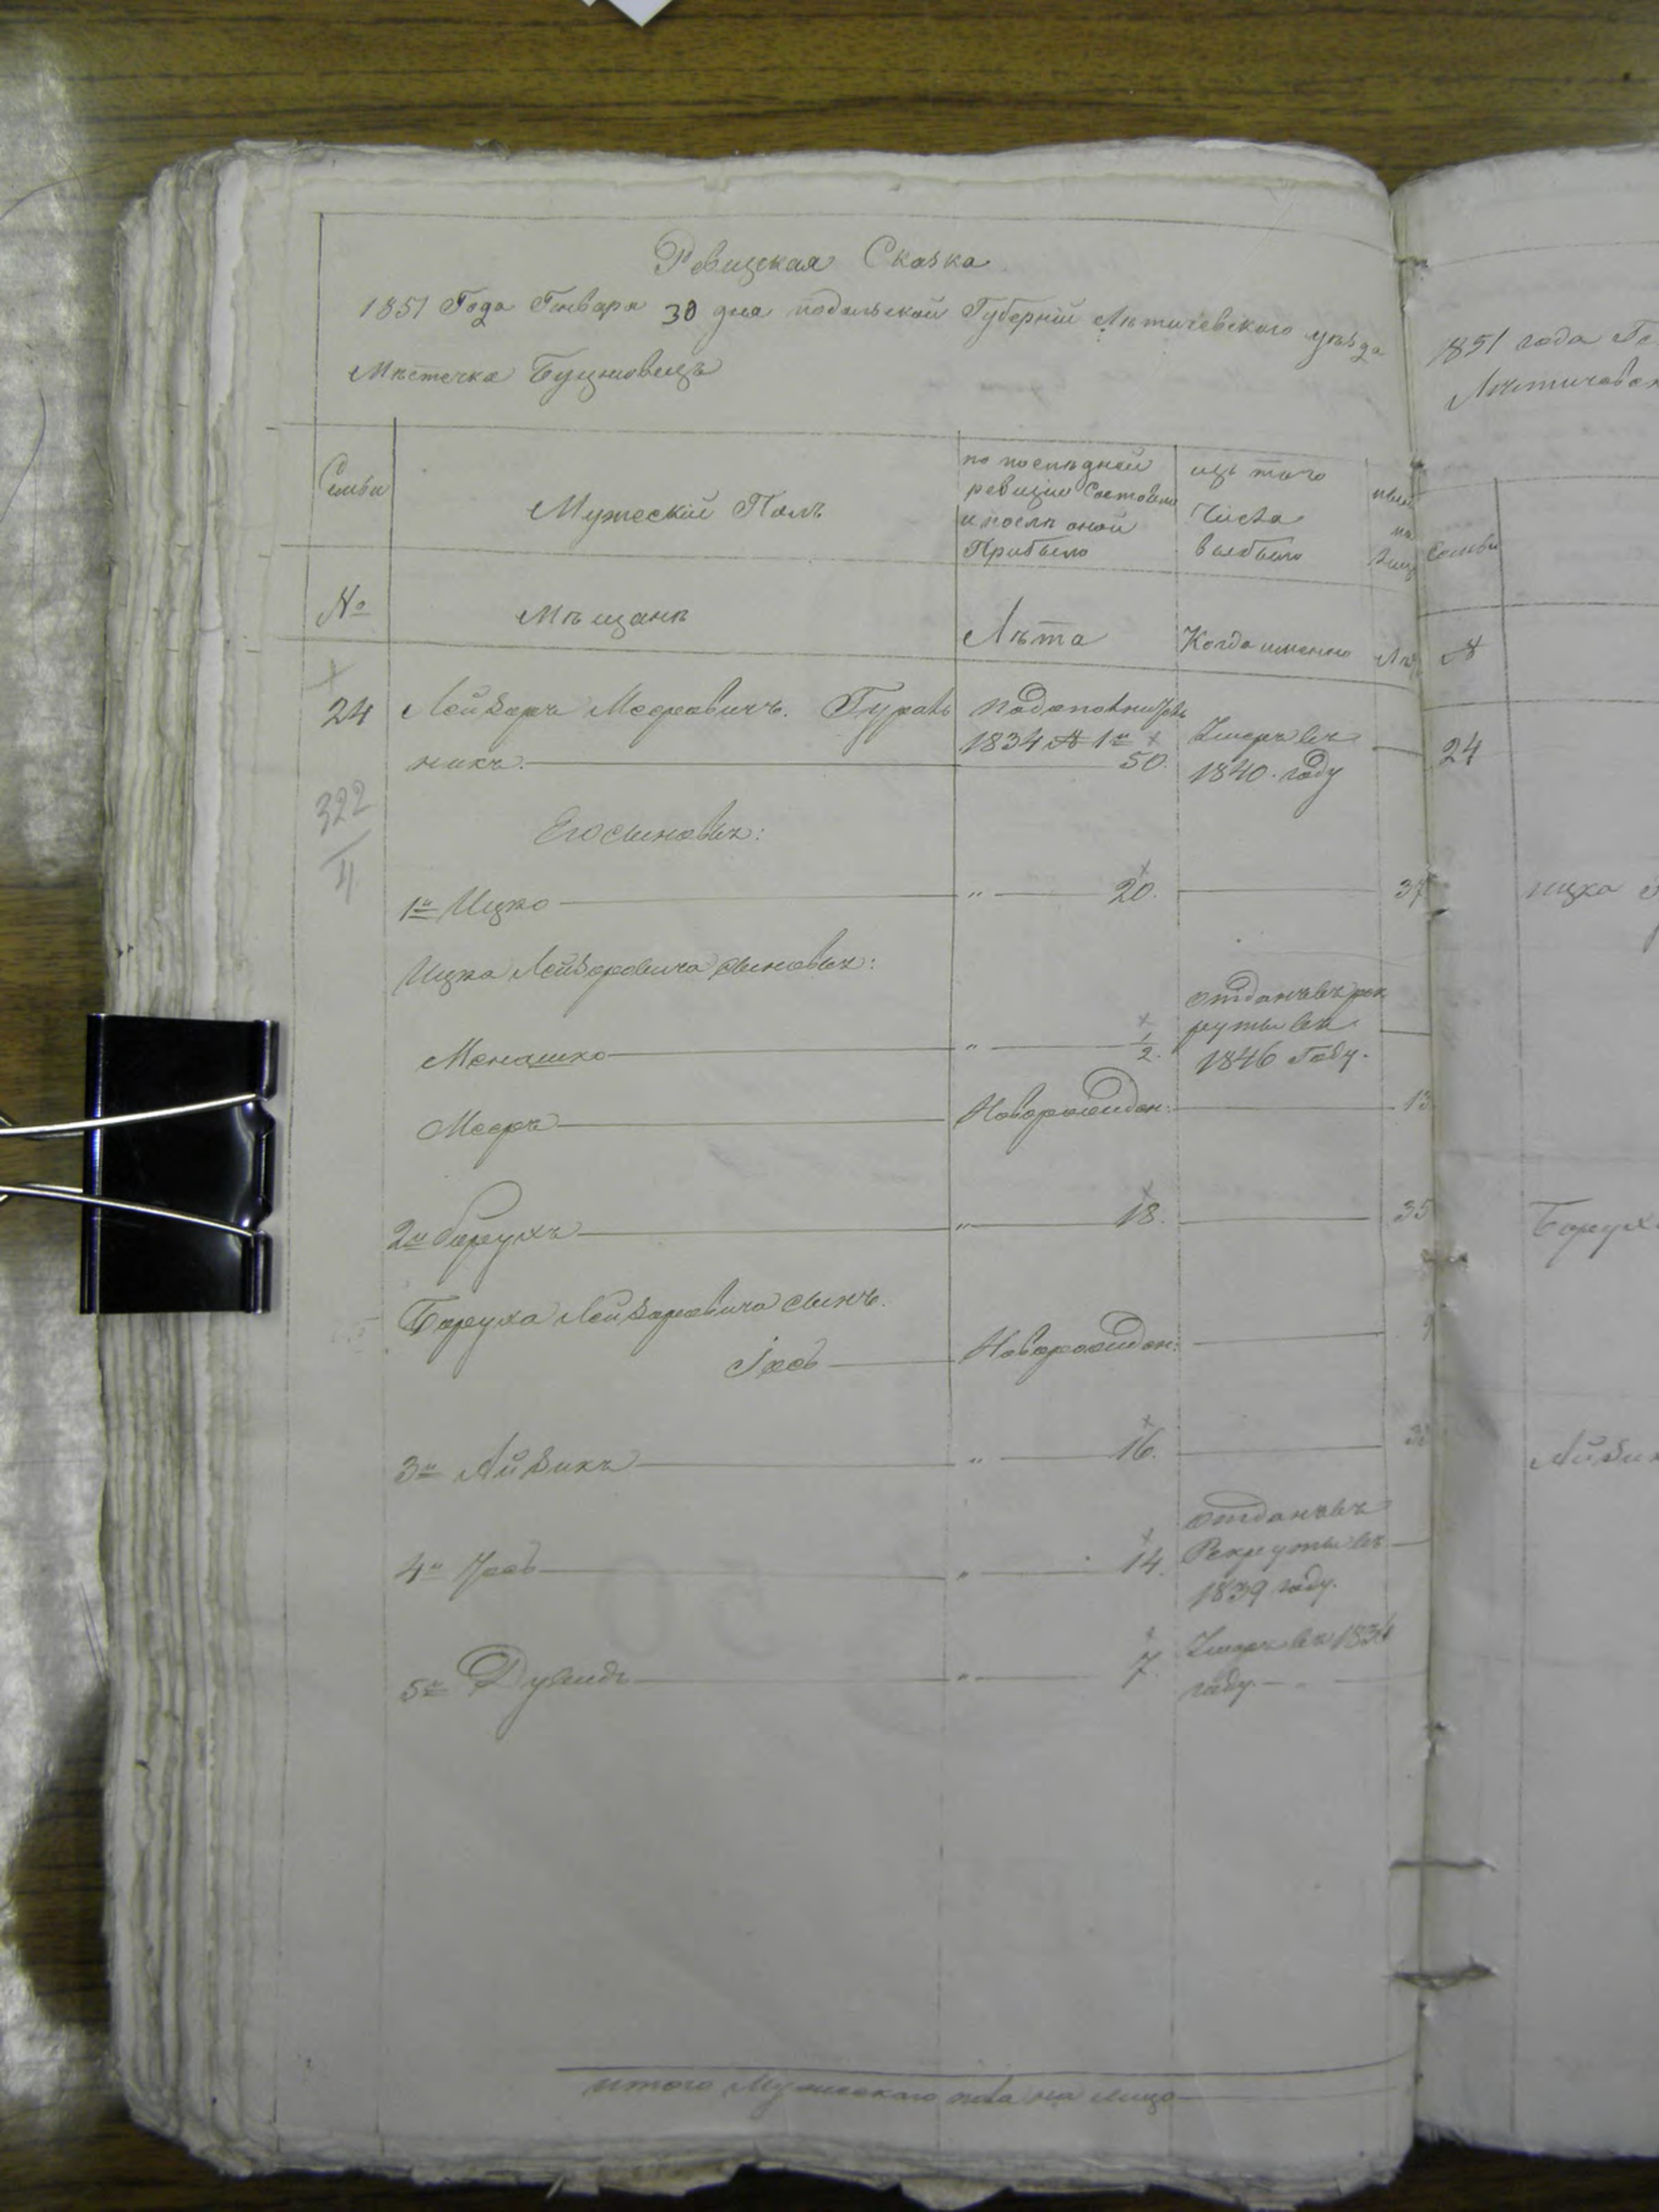 Ревизская Сказка
1851 Года Генваря 30 дня подольской Губерніи Лѣтичевского уѣзда
Мѣстечка Буцновецъ
Семьи
Мужескій Полъ
по послѣдней
ревизіи Состояло
и послѣ оной
Прибыло
изъ того
Числа
выбыло
нынѣ
на
Лицо
№
Мѣщанѣ
Лѣта
Когда именно
Лѣта
24 Лейзоръ Мееровичъ. Гураль
никъ. 50.
1834 № 1й
Умеръ въ
1840. году
322
4
Его сыновья:
1й Ицко " 20. 37
Ицка Лейзоровича сыновья:
Менашко " 1/2.
отданъ въ рек
руты въ
1846 Году.
Мееръ Новорожден: 13
2й Борухъ " 18. 35
Боруха Лейзоровича сынъ.
Іосъ Новорожден: 9
3й Айзикъ " 16.
4й Іосъ " 14.
отданъ въ
Рекруты въ
1839 году.
5й Дувидъ " 7.
Умеръ въ 1836
году. "
итого Мужескаго пола на лицо
1851 года Ге
Лѣтичевск
Семьи
№
24
ицка
Борух
Айзик